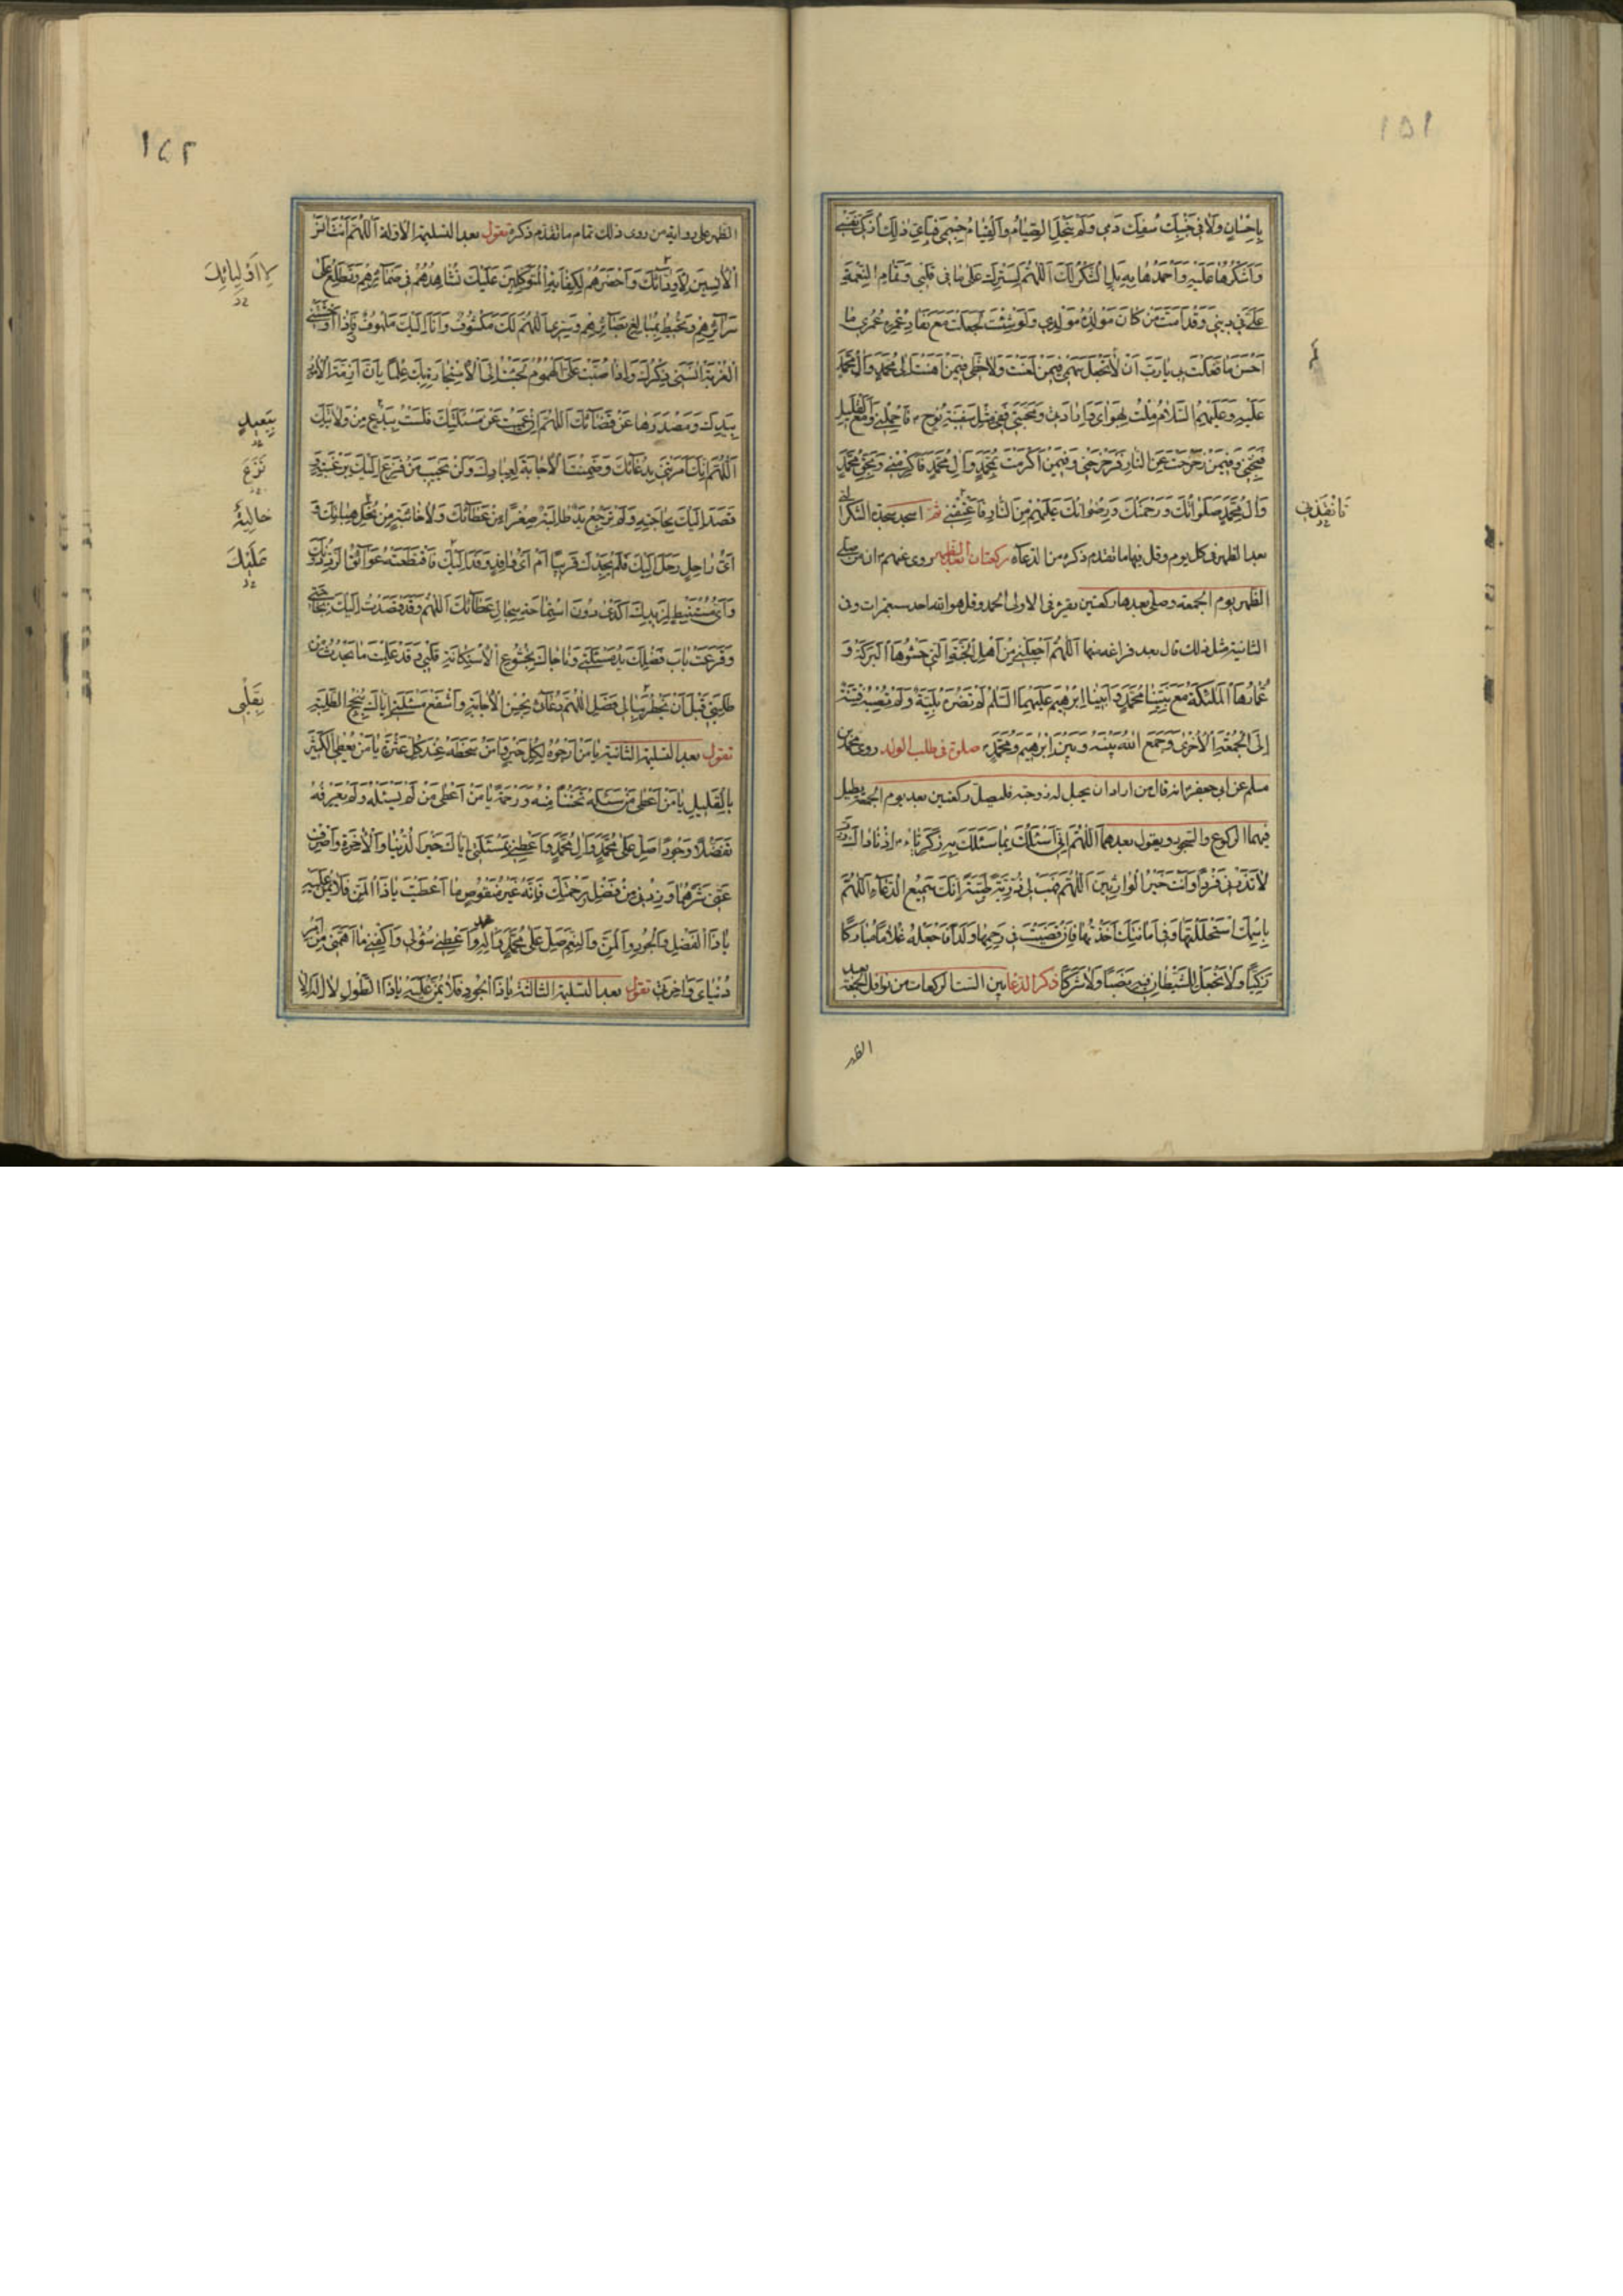 ١٥١
بِاِحْسٰانٍ وَلٰا فی جَنْبِكَ سُفِكَ دَمی وَلَمْ یُنْحِلِ الصِّیٰامُ وَالْقِیٰامُ جِسْمی فَبِاَیِّ ذٰلِكَ اُزَكّی نَفْسی
وَاَشْكُرُهٰا عَلَیْهِ وَاَحْمَدُهٰا بِهِ بَلِ الشُّكْرُ لَكَ اَللّٰهُمَّ لِسَتْرِكَ عَلٰی مٰا فی قَلْبی وَتَمٰامِ النِّعْمَةِ
عَلَیَّ فی دینی وَقَدْ اَمَتَّ مَنْ كٰانَ مَوْلِدُهُ مَوْلِدی وَلَوْ شِئْتَ لَجَعَلْتَ مَعَ نَفٰادِ عُمْرِهِ عُمْری مٰا
اَحْسَنَ مٰا فَعَلْتَ بی یٰا رَبِّ اَنْ لٰا تَجْعَلَ سَهْمی فیمَنْ لَعَنْتَ وَلٰا حَظّی فیمَنْ اَهَنْتَ اِلٰی مُحَمَّدٍ وَاٰلِ مُحَمَّدٍ
عَلَیْهِ وَعَلَیْهِمُ السَّلٰامُ مِلْتُ بِهَوٰایَ وَاِرٰادَتی وَمَحَبَّتی فَفی مِثْلِ سَفینَةِ نُوحٍ فَاحْمِلْنی وَمَعَ الْقَلیلِ
فَنَجِّنی وَفیمَنْ زَحْزَحْتَ عَنِ النّٰارِ فَزَحْزِحْنی وَفیمَنْ اَكْرَمْتَ بِمُحَمَّدٍ وَاٰلِ مُحَمَّدٍ فَاَكْرِمْنی وَبِحَقِّ مُحَمَّدٍ
وَاٰلِ مُحَمَّدٍ صَلَوٰاتُكَ وَرَحْمَتُكَ وَرِضْوٰانُكَ عَلَیْهِمْ مِنَ النّٰارِ فَاَعْتِقْنی ثم اسجد سجدة الشكر التی
فَانْقِذْنی
بعد الظهر فی كل یوم وقل فیها ما تقدم ذكره من الدعآء ركعتان بعد الظهر روی عنهم ان من صلی
الظهر یوم الجمعة وصلی بعدها ركعتین یقرء فی الاولی الحمد وقل هو الله احد سبع مرات وفی
الثانیة مثل ذلك قال بعد فراغه منها اَللّٰهُمَّ اجْعَلْنی مِنْ اَهْلِ الْجَنَّةِ الَّتی حَشْوُهَا الْبَرَكَةُ وَ
عُمّٰارُهَا الْمَلٰئِكَةُ مَعَ نَبِیِّنٰا مُحَمَّدٍ وَاَبینٰا اِبْرٰهیمَ عَلَیْهِمَا السَّلٰمُ لَمْ تَضُرَّهُ بَلِیَّةٌ وَلَمْ تُصِبْهُ فِتْنَةٌ
اِلَی الْجُمُعَةِ الْاُخْرٰی وَجَمَعَ اللهُ بَیْنَهُ وَبَیْنَ اِبْرٰهیمَ وَمُحَمَّدٍ صلوة فی طلب الولد روی محمد بن
مسلم عن ابی جعفر انه قال من اراد ان یحبل له زوجته فلیصل ركعتین بعد یوم الجمعة یطیل
فیهما الركوع والسجود ویقول بعدهما اَللّٰهُمَّ اِنّی اَسْئَلُكَ بِمٰا سَئَلَكَ بِهِ زَكَرِیّٰا اِذْ نٰادٰاكَ رَبِّ
لٰا تَذَرْنی فَرْدًا وَاَنْتَ خَیْرُ الْوٰارِثینَ اَللّٰهُمَّ هَبْ لی ذُرِّیَّةً طَیِّبَةً اِنَّكَ سَمیعُ الدُّعٰآءِ اَللّٰهُمَّ
بِاسْمِكَ اسْتَحْلَلْتُهٰا وَفی اَمٰانَتِكَ اَخَذْتُهٰا فَاِنْ قَضَیْتَ فی رَحِمِهٰا وَلَدًا فَاجْعَلْهُ غُلٰامًا مُبٰارَكًا
زَكِیًّا وَلٰا تَجْعَلْ لِلشَّیْطٰانِ فیهِ نَصیبًا وَلٰا شَرَكًا ذكر الدعا بین الست الركعات من نوافل الجمعة بعد
الظهر
١٥٢
الظهر علی روایة من روی ذلك تمام ما تقدم ذكره تقول بعد التسلیمة الاولة اَللّٰهُمَّ اَنْتَ اٰنَسُ
الْاٰنِسینَ لِاَوِدّٰآئِكَ وَاَحْضَرُهُمْ لِكِفٰایَةِ الْمُتَوَكِّلینَ عَلَیْكَ تُشٰاهِدُهُمْ فی ضَمٰآئِرِهِمْ وَتَطَّلِعُ عَلٰی
لِاَوْلِیٰائِكَ
سَرٰآئِرِهِمْ وَتُحیطُ بِمَبٰالِغِ بَصٰآئِرِهِمْ وَسِرّی اَللّٰهُمَّ لَكَ مَكْشُوفٌ وَاَنَا اِلَیْكَ مَلْهُوفٌ فَاِذٰا اَوْحَشَتْنی
الْغُرْبَةُ اٰنَسَنی ذِكْرُكَ وَاِذٰا صُبَّتْ عَلَیَّ الْهُمُومُ لَجَئْتُ اِلَی الْاِسْتِجٰارَةِ بِكَ عِلْمًا بِاَنَّ اَزِمَّةَ الْاُمُورِ
بِیَدِكَ وَمَصْدَرَهٰا عَنْ قَضٰآئِكَ اَللّٰهُمَّ اِنْ عَمیتُ عَنْ مَسْئَلَتِكَ فَلَسْتُ بِبِدْعٍ مِنْ وِلٰایَتِكَ
بِبَعیدٍ
اَللّٰهُمَّ اِنَّكَ اَمَرْتَنی بِدُعٰآئِكَ وَضَمِنْتَ الْاِجٰابَةَ لِعِبٰادِكَ وَلَنْ یَخیبَ مَنْ فَزِعَ اِلَیْكَ بِرَغْبَتِهِ وَ
نَزَعَ
قَصَدَ اِلَیْكَ بِحٰاجَتِهِ وَلَمْ تَرْجِعْ یَدٌ طٰالِبَةٌ صِفْرًا مِنْ عَطٰآئِكَ وَلٰا خٰائِبَةً مِنْ نُحْلِ هِبٰاتِكَ وَ
خٰالِیَةً
اَیُّ رٰاحِلٍ رَحَلَ اِلَیْكَ فَلَمْ یَجِدْكَ قَریبًا اَمْ اَیُّ وٰافِدٍ وَفَدَ اِلَیْكَ فَاقْتَطَعَتْهُ عَوٰآئِقُ الرَّدِّ دُونَكَ
عَلَیْكَ
وَاَیُّ مُسْتَنْبِطٍ لِمَزیدِكَ اَكْدٰی دُونَ اسْتِمٰاحَةِ سِجٰالِ عَطٰآئِكَ اَللّٰهُمَّ وَقَدْ قَصَدْتُ اِلَیْكَ بِحٰاجَتی
وَقَرَعَتْ بٰابَ فَضْلِكَ یَدُ مَسْئَلَتی وَنٰاجٰاكَ بِخُشُوعِ الْاِسْتِكٰانَةِ قَلْبی وَقَدْ عَلِمْتَ مٰا یَحْدُثُ مِنْ
طَلِبَتی قَبْلَ اَنْ یَخْطُرَ بِبٰالی فَصِلِ اللّٰهُمَّ دُعٰآئی بِحُسْنِ الْاِجٰابَةِ وَاشْفَعْ مَسْئَلَتی اِیّٰاكَ بِنُجْحِ الطَّلِبَةِ
بِقَلْبی
تقول بعد التسلیمة الثانیة یٰا مَنْ اَرْجُوهُ لِكُلِّ خَیْرٍ وَاٰمَنُ سَخَطَهُ عِنْدَ كُلِّ عَثْرَةٍ یٰا مَنْ یُعْطِی الْكَثیرَ
بِالْقَلیلِ یٰا مَنْ اَعْطٰی مَنْ سَئَلَهُ تَحَنُّنًا مِنْهُ وَرَحْمَةً یٰا مَنْ اَعْطٰی مَنْ لَمْ یَسْئَلْهُ وَلَمْ یَعْرِفْهُ
تَفَضُّلًا وَجُودًا صَلِّ عَلٰی مُحَمَّدٍ وَاٰلِ مُحَمَّدٍ وَاَعْطِنی بِمَسْئَلَتی اِیّٰاكَ خَیْرَ الدُّنْیٰا وَالْاٰخِرَةِ وَاصْرِفْ
عَنّی شَرَّهُمٰا وَزِدْنی مِنْ فَضْلِ رَحْمَتِكَ فَاِنَّهُ غَیْرُ مَنْقُوصٍ مٰا اَعْطَیْتَ یٰا ذَا الْمَنِّ فَلٰا یُمَنُّ عَلَیْهِ
یٰا ذَا الْفَضْلِ وَالْجُودِ وَالْمَنِّ وَالنِّعَمِ صَلِّ عَلٰی مُحَمَّدٍ وَاٰلِ محمد وَاَعْطِنی سُؤْلی وَاكْفِنی مٰا اَهَمَّنی مِنْ اَمْرِ
دُنْیٰایَ وَاٰخِرَتی تقول بعد التسلیمة الثالثة یٰا ذَا الْجُودِ فَلٰا یُمَنُّ عَلَیْهِ یٰا ذَا الطَّوْلِ لٰا اِلٰهَ اِلّٰا